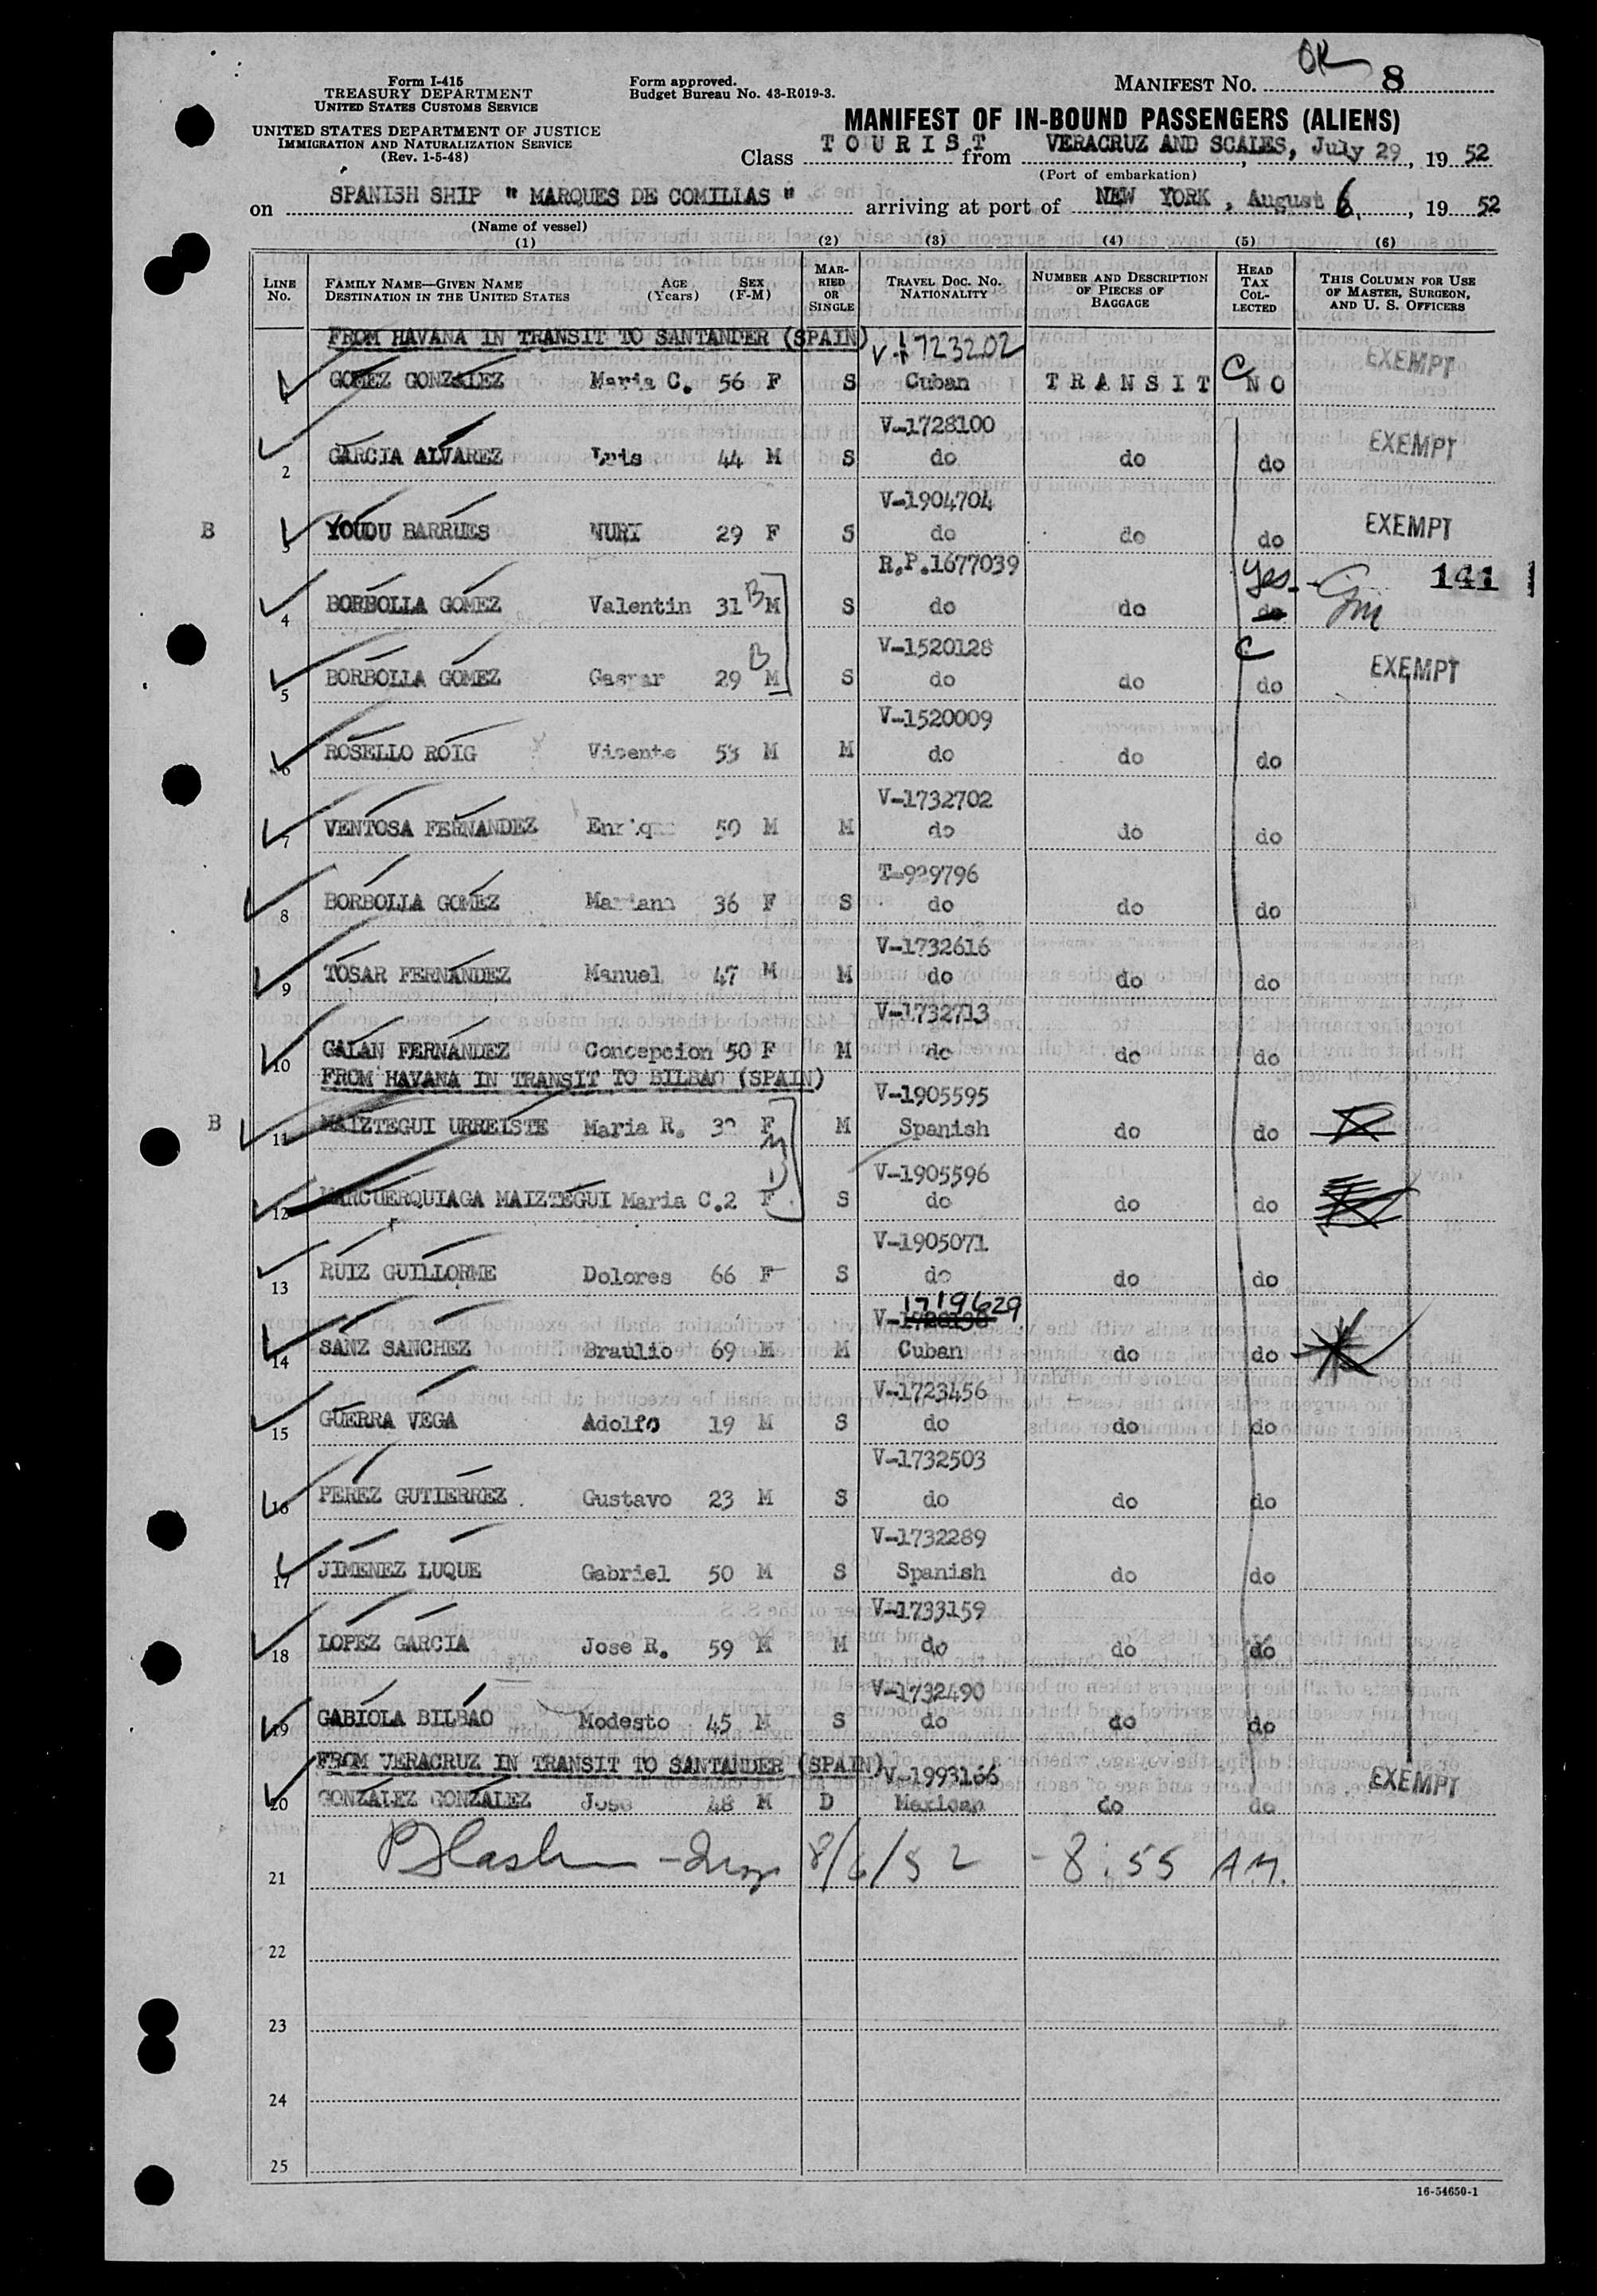 OK
Form I-415
TREASURY DEPARTMENT
UNITED STATES CUSTOMS SERVICE
UNITED STATES DEPARTMENT OF JUSTICE
IMMIGRATION AND NATURALIZATION SERVICE
(Rev. 1-5-48)
Form approved.
Budget Bureau No. 43-R019-3.
MANIFEST No. 8
MANIFEST OF IN-BOUND PASSENGERS (ALIENS)
Class TOURIST from VERACRUZ AND SCALES, July 29, 1952
(Port of embarkation)
on SPANISH SHIP "MARQUES DE COMILLAS" arriving at port of NEW YORK, August 6, 1952
(Name of vessel)
(1) (2) (3) (4) (5) (6)
LINE No. FAMILY NAME—GIVEN NAME DESTINATION IN THE UNITED STATES AGE (Years) SEX (F-M) MARRIED OR SINGLE TRAVEL DOC. NO. NATIONALITY NUMBER AND DESCRIPTION OF PIECES OF BAGGAGE HEAD TAX COLLECTED THIS COLUMN FOR USE OF MASTER, SURGEON, AND U. S. OFFICERS
FROM HAVANA IN TRANSIT TO SANTANDER (SPAIN) V-1723202
1 GOMEZ GONZALEZ Maria C. 56 F S Cuban TRANSIT C NO EXEMPT
V-1728100
2 GARCIA ALVAREZ Luis 44 M S do do do EXEMPT
V-1904704
B 3 YOUDU BARRUES NURY 29 F S do do do EXEMPT
R.P.1677039 Yes
4 BORBOLLA GOMEZ Valentin 31 B M S do do do 141
V-1520128 C
5 BORBOLLA GOMEZ Gaspar 29 B M S do do do EXEMPT
V-1520009
6 ROSELLO ROIG Vicente 53 M M do do do
V-1732702
7 VENTOSA FERNANDEZ Enrique 50 M M do do do
T-929796
8 BORBOLLA GOMEZ Mariana 36 F S do do do
V-1732616
9 TOSAR FERNANDEZ Manuel 47 M M do do do
V-1732713
10 GALAN FERNANDEZ Concepcion 50 F M do do do
FROM HAVANA IN TRANSIT TO BILBAO (SPAIN)
V-1905595
B 11 MAIZTEGUI URREISTE Maria R. F M Spanish do do
V-1905596
12 MARCUERQUIAGA MAIZTEGUI Maria C. 2 F S do do do
V-1905071
13 RUIZ GUILLORME Dolores 66 F S do do do
V-1719629
14 SANZ SANCHEZ Braulio 69 M M Cuban do do
V-1723456
15 GUERRA VEGA Adolfo 19 M S do do do
V-1732503
16 PEREZ GUTIERREZ Gustavo 23 M S do do do
V-1732289
17 JIMENEZ LUQUE Gabriel 50 M S Spanish do do
V-1733159
18 LOPEZ GARCIA Jose R. 59 M M do do do
V-1732490
19 GABIOLA BILBAO Modesto 45 M S do do do
FROM VERACRUZ IN TRANSIT TO SANTANDER (SPAIN) V-1993166
20 GONZALEZ GONZALEZ Jose 48 M D Mexican do do EXEMPT
21 8/6/52 - 8:55 A.M.
22
23
24
25
16-54650-1